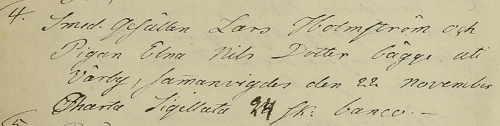 4. Smed. Gesällen Lars Holmström och
Pigan Elna Nils Dotter bägge uti
Wärby, samanvigdes den 22 november
Charta Sigillata 24 sk: banco. —